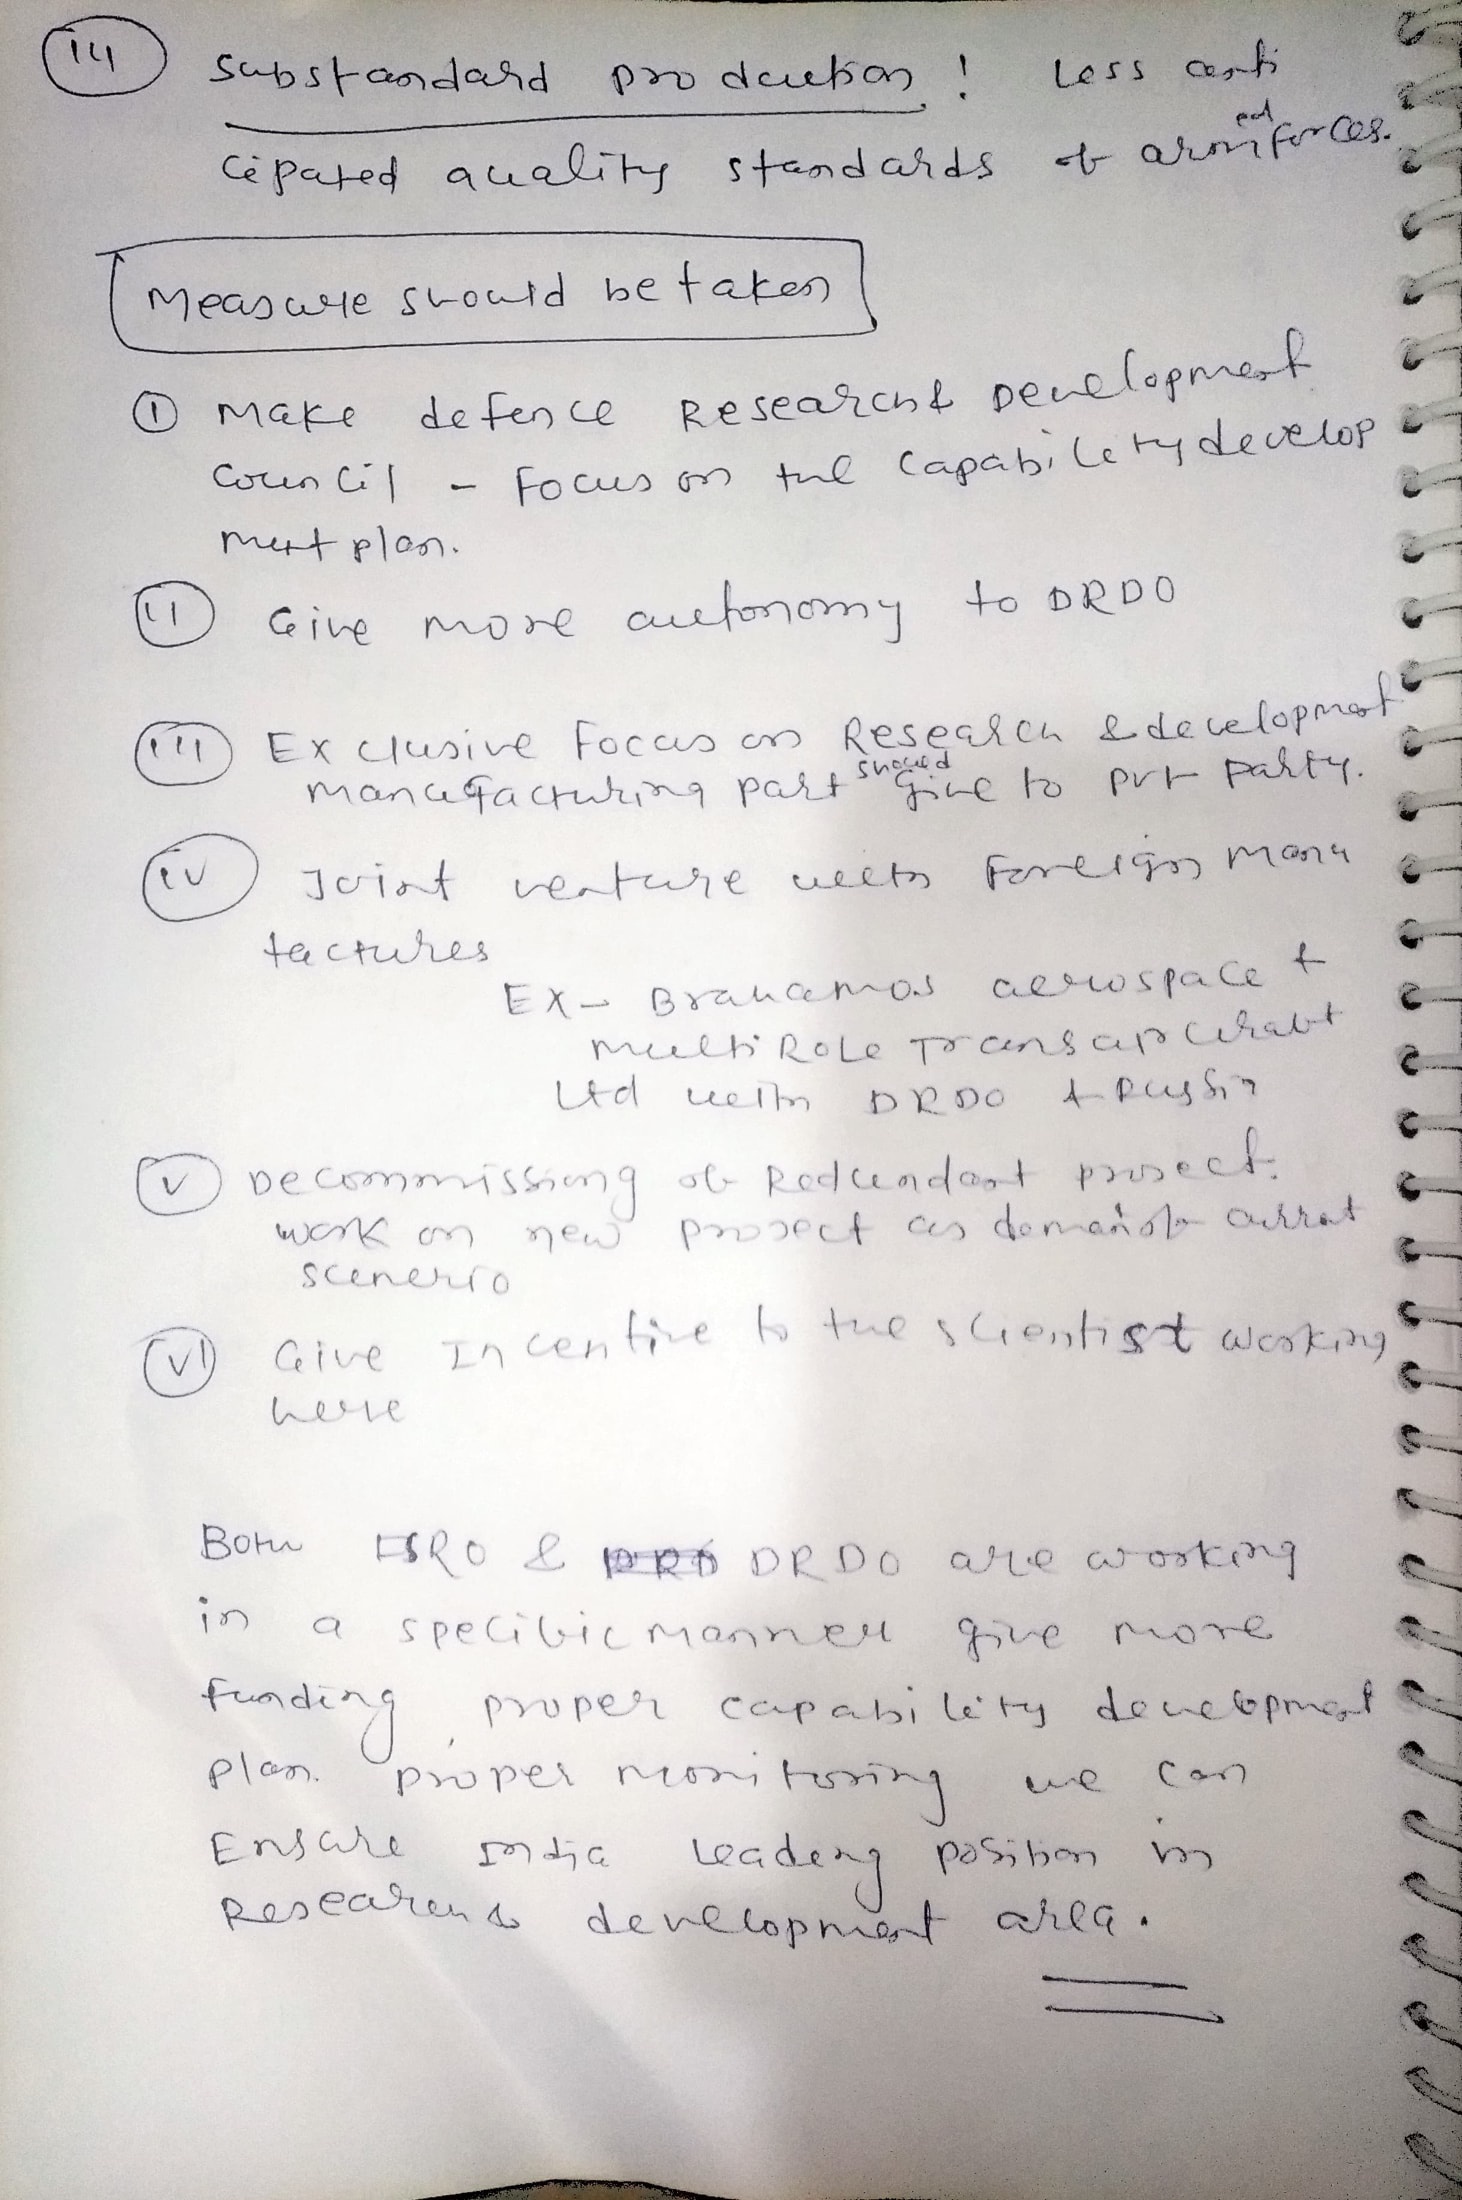 iii Substandard production! Less anti
cipated quality standards of armed forces.
Measure should be taken
① Make defence Research & Development
Council - Focus on the capability develop
ment plan.
ii Give more autonomy to DRDO
iii Exclusive Focus on Research & development
manufacturing part should give to pvt party.
iv Joint venture with Foreign manu
factures
Ex- Brahamos aerospace &
multi Role Transap Ltd with DRDO & Russia
v Decommissiong of Redundant project.
work on new project as demand of current
scenerio
vi Give Incentive to the scientist working
here
Both ISRO & DRDO are working
in a specific manner give more
funding, proper capability development
plan. proper monitoring we can
Ensure India leading position in
Research & development area.